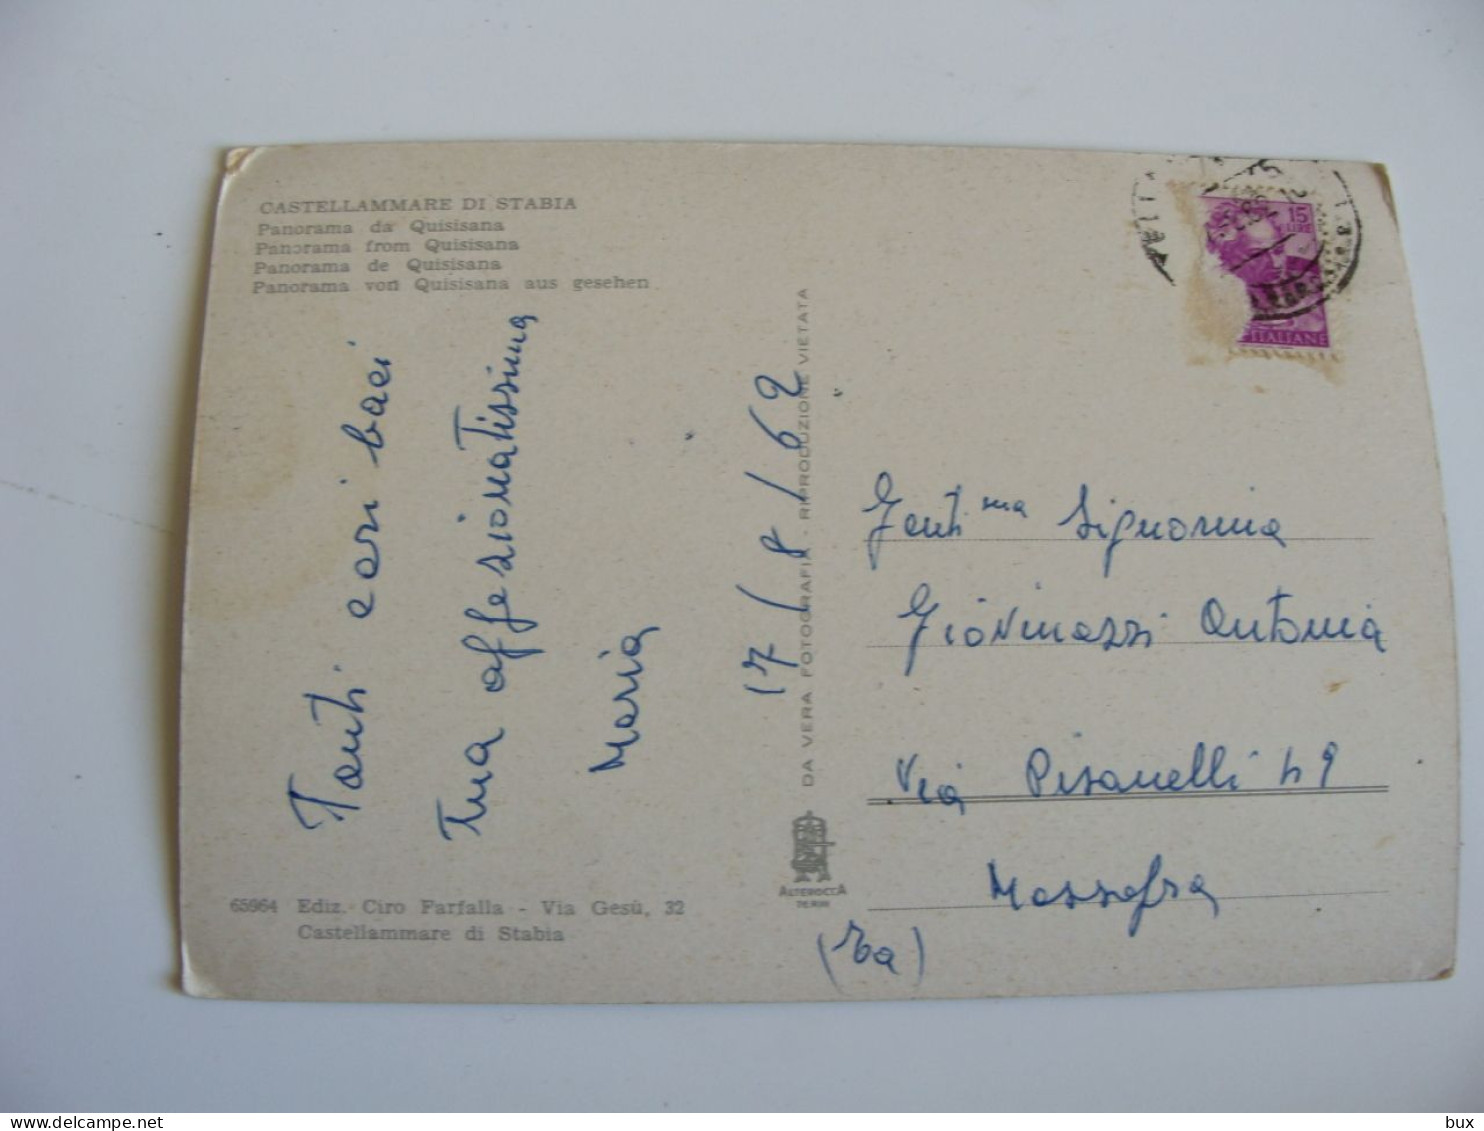 CASTELLAMMARE DI STABIA
Panorama da Quisisana
Panorama from Quisisana
Panorama de Quisisana
Panorama von Quisisana aus gesehen
Tanti cari baci
Tua affezionatissima
Maria
17/8/62
DA VERA FOTOGRAFIA - RIPRODUZIONE VIETATA
15
LIRE
ITALIANE
Gentima Signorina
Giovinazzi Antonia
Via Pisanelli n 9
Massafra
(Ta)
ALTEROCCA
TERNI
65964 Ediz. Ciro Farfalla - Via Gesù, 32
Castellammare di Stabia
bux